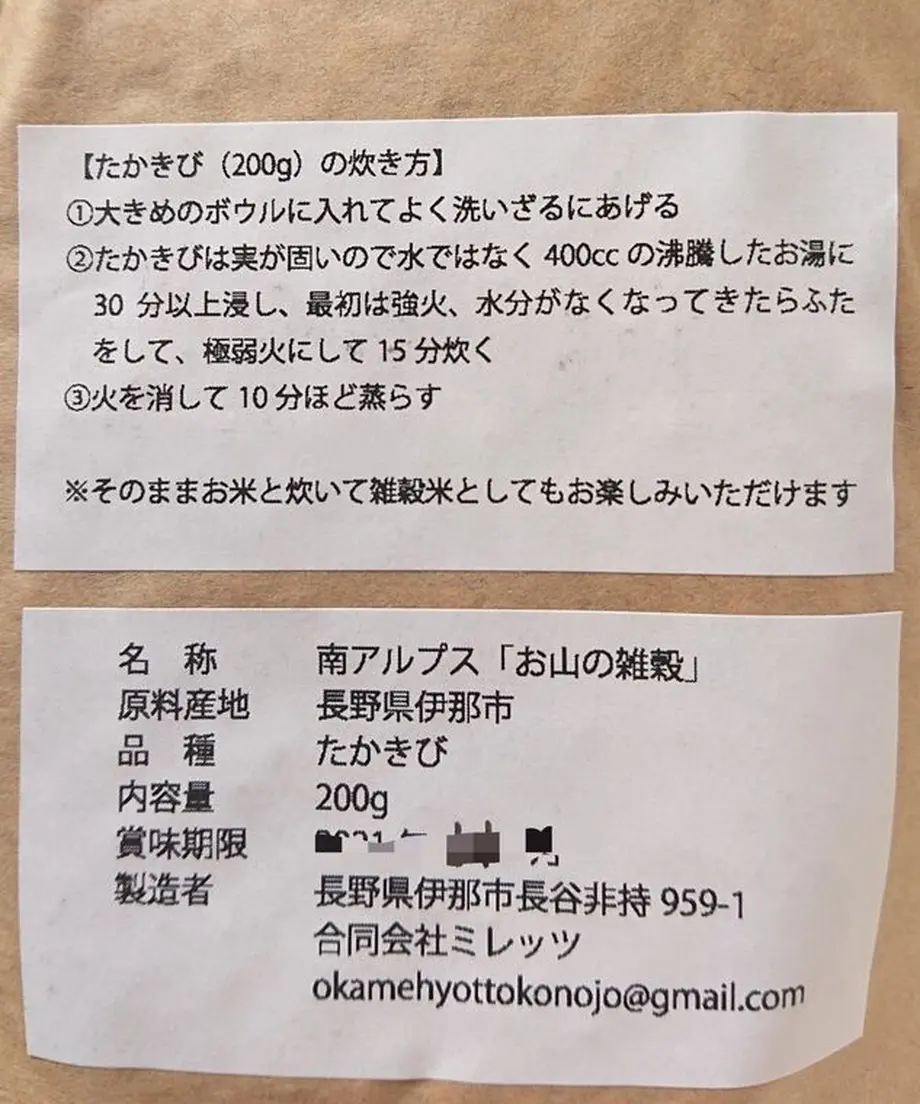 【たかきび（200g）の炊き方】
①大きめのボウルに入れてよく洗いざるにあげる
②たかきびは実が固いので水ではなく 400cc の沸騰したお湯に
30 分以上浸し、最初は強火、水分がなくなってきたらふた
をして、極弱火にして 15 分炊く
③火を消して 10 分ほど蒸らす
※そのままお米と炊いて雑穀米としてもお楽しみいただけます
名　称　南アルプス「お山の雑穀」
原料産地　長野県伊那市
品　種　たかきび
内容量　200g
賞味期限
製造者　長野県伊那市長谷非持 959-1
合同会社ミレッツ
okamehyottokonojo@gmail.com